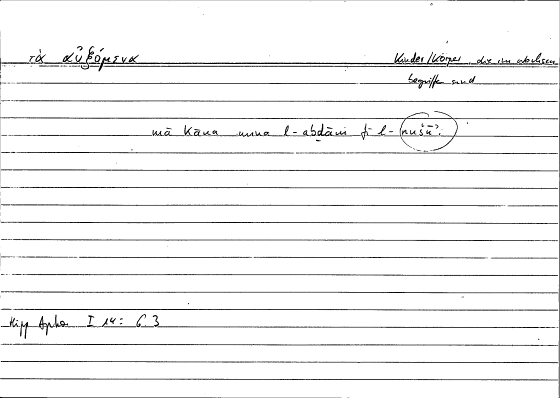 τὰ αὐξόμενα
Kinder/Körper, die im
begriffen sind
mā kāna mina l-abdāni fī l-nušūʾi
Hipp Apho I 14: 6.3